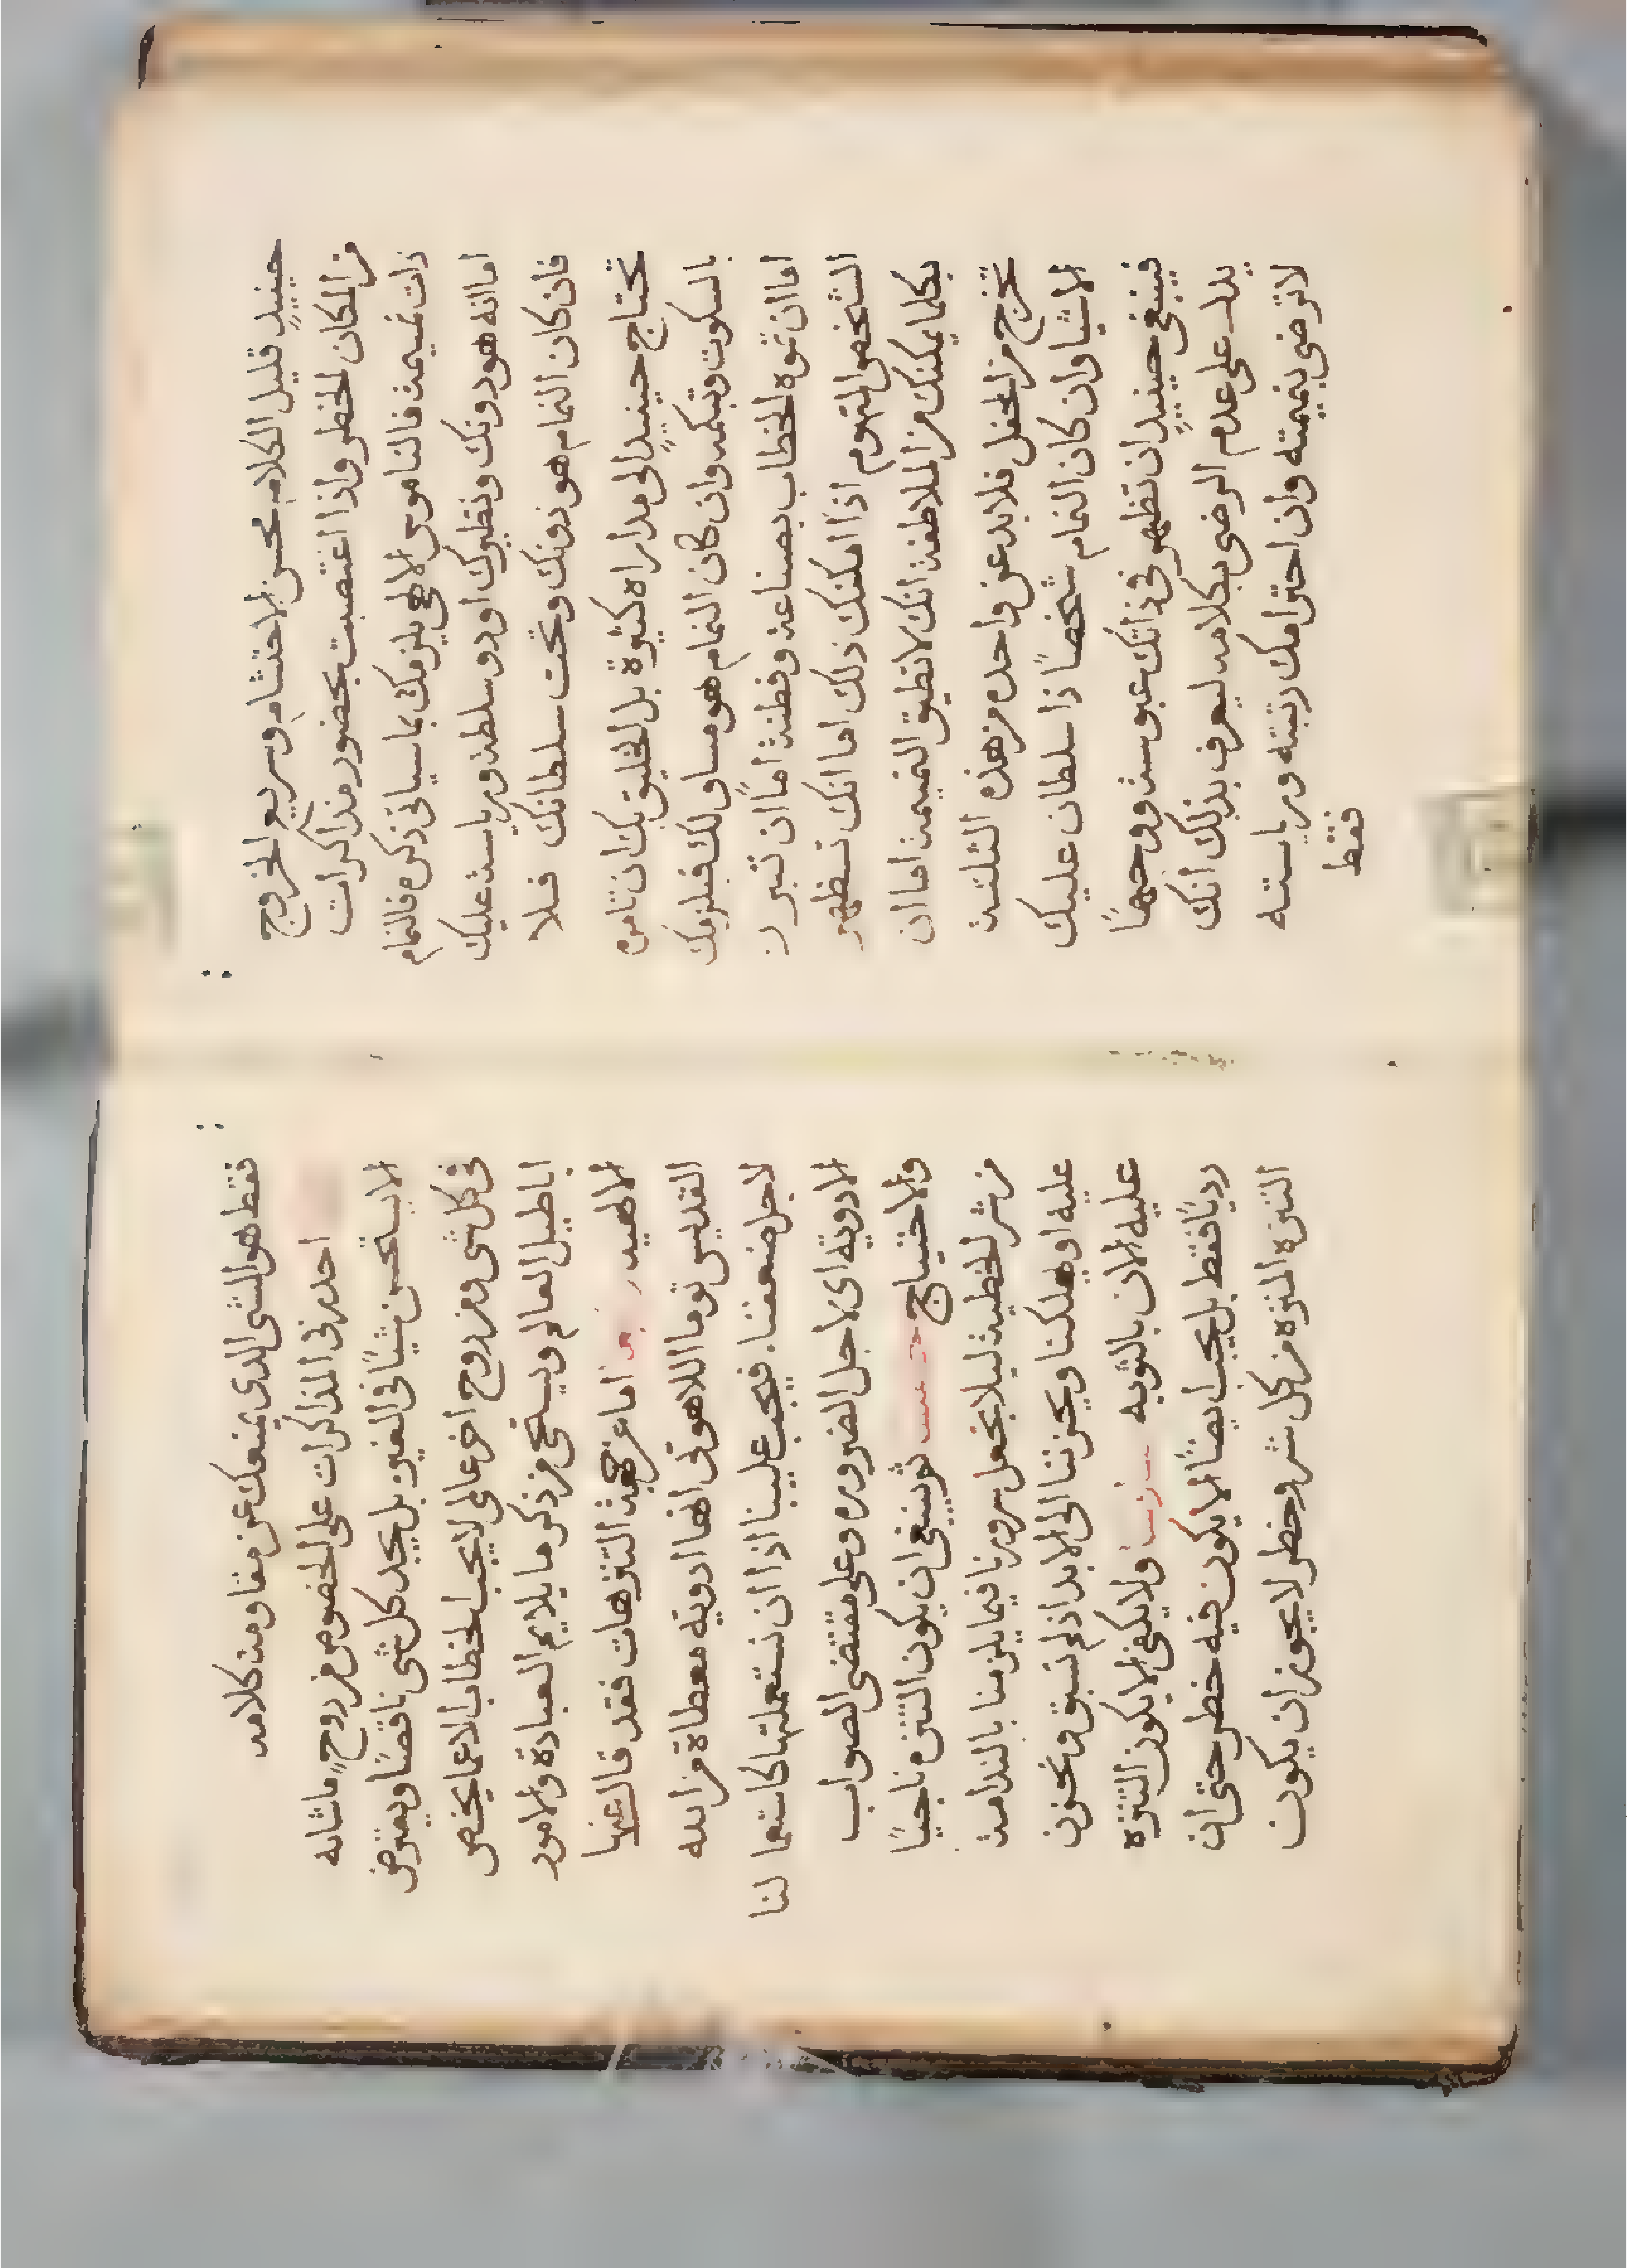 حينيدٍ قليل الكلام محسن الاحتشام وسريع الخروج
من المكان الخطر واذا اغتصبت بحضور مذاكرات
ذات نميمة فالناموس الالهي يلزمك بما سياتي ذكره فالنمام
اما انه هو دونك ونظيرك او دو سلطة ورياسة عليك
فان كان النمام هو دونك وتحت سلطانك فلا
تحتاج حينيدٍ الى مداراه كثيرة بل الخليق بك ان تامره
بالسكوت وتبكمه وان كان النمام هو مساوٍ لك فيلزمك
اما ان توه الخطاب بصناعة وفطنة اماً ان تبرر
الشخص المتهوم اذاً امكنك ذلك اما انك تظهر
بكلما يمكنك من الملاطفة انك لا تطيق النميمة اما ان
تخرج من المحفل فلا بد عن واحده من هذه الثلثة
الاشيا وان كان النمام شخصاً ذا سلطان عليك
فينبغي حينيدٍ ان تظهر في ذاتك عبوسة ووجهاً
يدل على عدم الرضى بكلامه ليعرف بذلك انك
لا ترضى بنميمته وان احترامك رتبته ورياسته
فقط
فقط هو الشي الدي يمنعك عن مقاومة كلامه
احدرني المذاكرات على الخصوص من روحٍ ماشانه
الا يستحسن شيًا في الغير بل يجد كل شي ناقصًا ويعترض
في كل شي ومن روح اخر عالمي لا يجب الخطاب الا عما يخص
اباطيل العالم ويستحي من ذكر ما يلايم العبادة والامور
الالهيه اما عن جهة التنزهات فقد قال عنها
القديس توما اللاهوتي انها ادويه معطاة من الله
لاجل ضعفنا. فيجب علينا اذا ان نستعملها كاستعمالنا
الادوية اى لاجل الضروره وعلى مقتضى الصواب
والاحتياج ثم ينبغي ان يكون التنزه ناجيًا
من شر الخطية ليلا يجعل سرورنا فيما يلزمنا بالندامة
عليه او يهلكنا ويحزننا الى الابد اذ لم نسبق ونحزن
عليه الان بالتوبه ولا يكفي الا يكون التنزه
رديًا فقط بل يجب ايضًا الا يكون فيه خطر حتى ان
التنزه المنزه من كل شر وخطر لا يجوز ان يكون